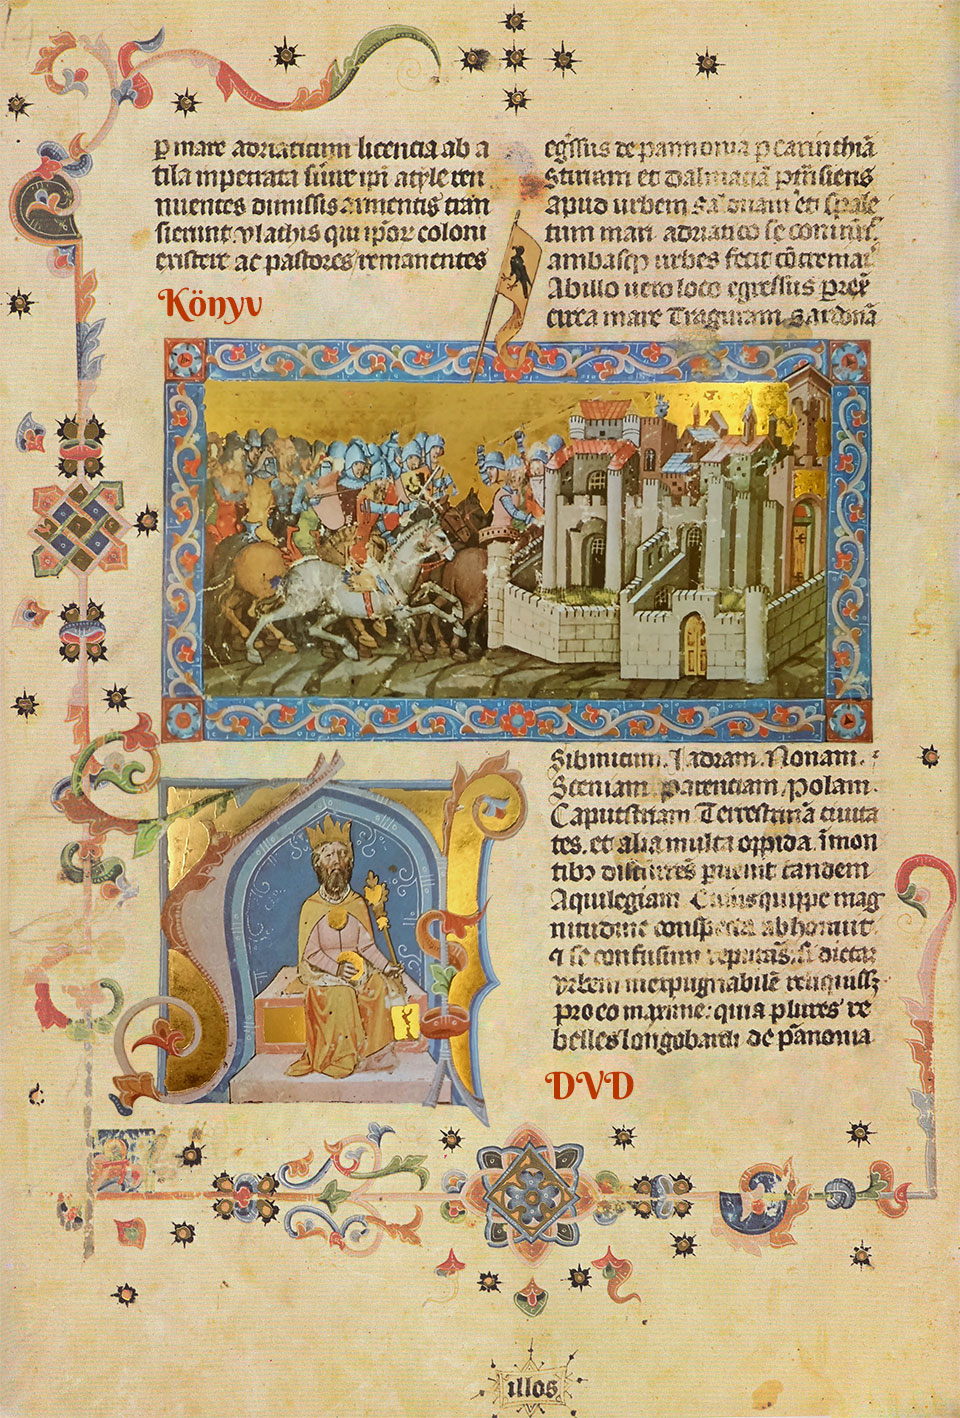 p mare adriaticum licencia ab a
tila inpetrata sunt ipi atyle ren
nuentes dimissis armentis tran
sierunt. vlathis qui ipor coloni
existere ac pastores remanentes
Könyv
egssus de pannonia p carinthiā
Stiriam et dalmaciā
apud urbem et spale
tum mari adriatico se
urbes fecit
Ab illo uero loco egressus
circa mare Traguriam Sardonā
Sibinicum. Iadram. Nonam.
Sceniam. Parenciam, Polam.
Caputistriam Terrestinā ciuita
tes. et alia multa oppida. ī mon
tibꝫ discurrēs puenit tandem
Aquilegiam Cuiusquippe mag
nitudine conspecta abhorruit
⁊ se confusum reputās. si dictā
vrbem inexpugnabilē reliquissꝫ
pro eo maxime: quia plures re
belles longobardi de pānonia
DVD
illos